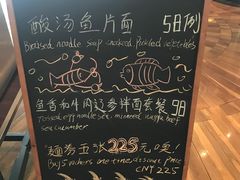 酸汤鱼片面 58/例
Braised noodle soup snacked Pickled vegetables
鱼香和牛肉边参拌面套餐 98
Tossed egg noodle set, minced wagyu beef,
sea cucumber
"麺券五张225元口爱!
Buy 5 vichers one time discount price
CNY 225